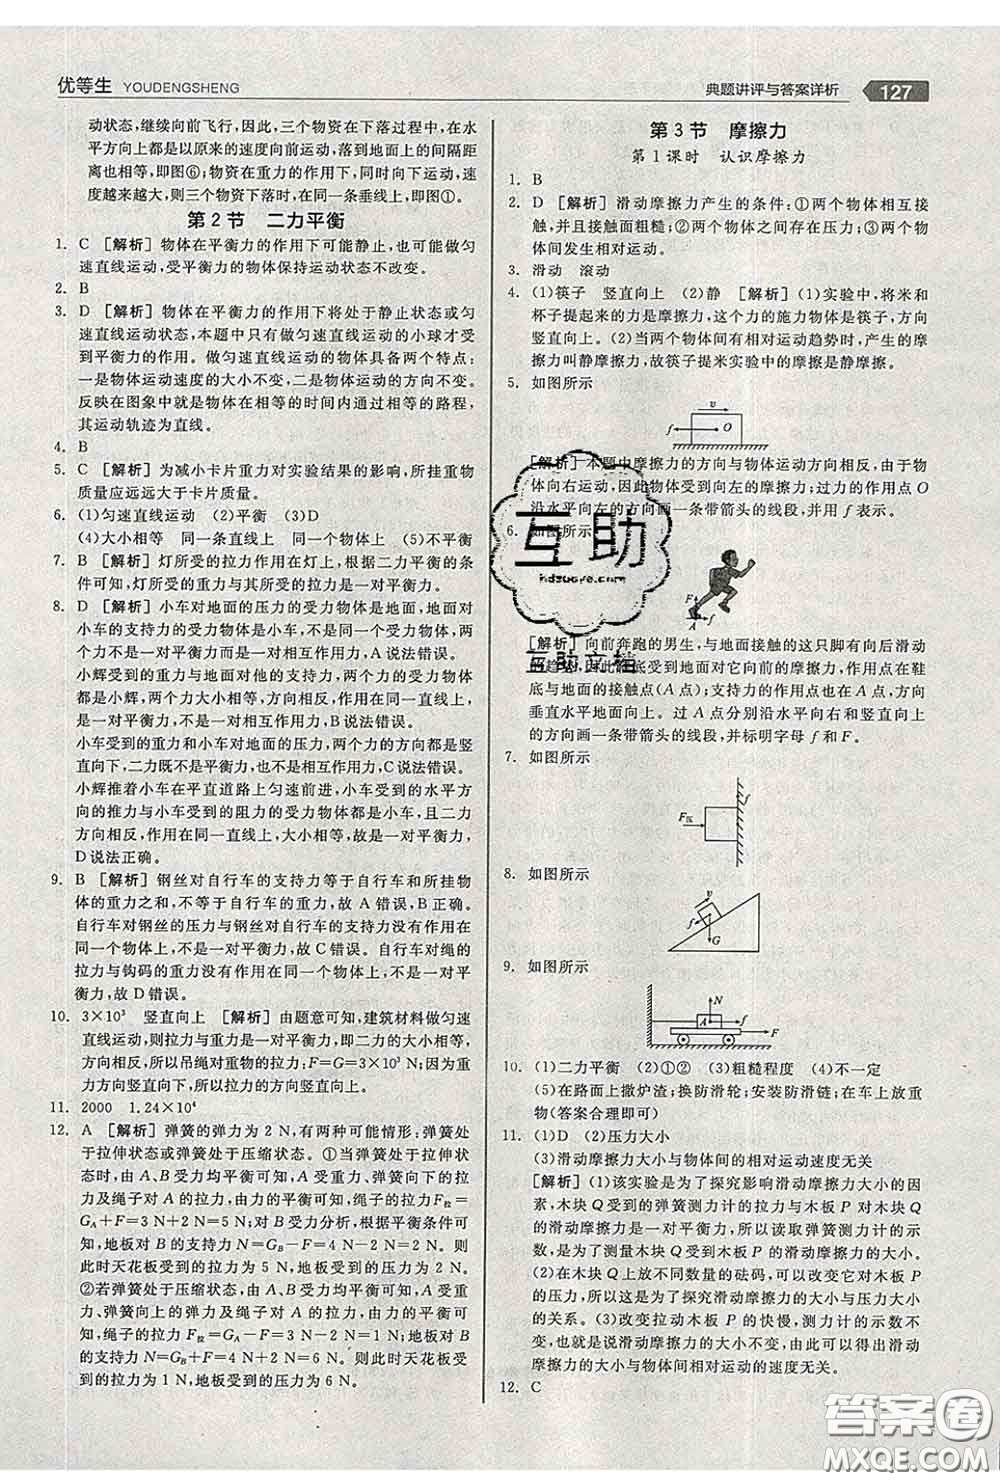 优等生 YOUDENGSHENG
典题讲评与答案详析 127
动状态,继续向前飞行,因此,三个物资在下落过程中,在水
平方向上都是以原来的速度向前运动,落到地面上的间隔距
离也相等,即图⑥;物资在重力的作用下,同时向下运动,速
度越来越大,则三个物资下落时,在同一条垂线上,即图①.
第2节 二力平衡
1. C [解析] 物体在平衡力的作用下可能静止,也可能做匀
速直线运动,受平衡力的物体保持运动状态不改变。
2. B
3. D [解析] 物体在平衡力的作用下将处于静止状态或匀
速直线运动状态,本题中只有做匀速直线运动的小球才受
到平衡力的作用。做匀速直线运动的物体具备两个特点:
一是物体运动速度的大小不变,二是物体运动的方向不变。
反映在图象中就是物体在相等的时间内通过相等的路程,
其运动轨迹为直线。
4. B
5. C [解析] 为减小卡片重力对实验结果的影响,所挂重物
质量应远远大于卡片质量。
6. (1)匀速直线运动 (2)平衡 (3)D
(4)大小相等 同一条直线上 同一个物体上 (5)不平衡
7. B [解析] 灯所受的拉力作用在灯上,根据二力平衡的条
件可知,灯所受的重力与其所受的拉力是一对平衡力。
8. D [解析] 小车对地面的压力的受力物体是地面,地面对
小车的支持力的受力物体是小车,不是同一物体,所以两个
力不是平衡力,它们是一对相互作用力,A说法错误。
小辉受到的重力与地面对他的支持力,两个力的受力物体
是小辉,两个力大小相等,方向相反,作用在同一直线上,
是一对平衡力,不是相互作用力,B说法错误。
小车受到的重力和小车对地面的压力,两个力的方向是竖直
向下,二力既不是平衡力,也不是相互作用力,C说法错误。
小辉推着小车在平直道路上匀速前进,小车受到的水平方
向的推力与小车受到的阻力的受力物体都是小车,且二力
方向相反,作用在同一直线上,大小相等,故是一对平衡力,
D说法正确。
9. B [解析] 钢丝对自行车的支持力等于自行车和所挂物
体的重力之和,不是一对平衡力,故A错误,B正确。
自行车对钢丝的压力与钢丝对自行车的支持力没有作用在
同一个物体上,不是一对平衡力,故C错误。自行车对绳的
拉力与钩码的重力没有作用在同一个物体上,不是一对平衡
力,故D错误。
10. 3×10³ 竖直向上 [解析] 由题意可知,建筑材料做匀速
直线运动,则拉力与重力是一对平衡力,大小相等,方向相
反,所以吊绳对重物的拉力:F=G=3×10³ N;因为重力方
向竖直向下,所以拉力的方向竖直向上。
11. 2000 1.24×10⁴
12. A [解析] 弹簧的弹力为2 N,有两种可能情形:弹簧处
于拉伸状态或弹簧处于压缩状态。①当弹簧处于拉伸状
态时,由A、B受力均平衡可知,A受重力、弹簧向下的拉力
及绳子对A的拉力,由力的平衡可知,绳子的拉力F拉=
G_A+F=3 N+2 N=5 N;对B受力分析,根据平衡条件可
知,地板对B的支持力N=G_B-F=4 N-2 N=2 N。则
此时天花板受到的拉力为5 N,地板受到的压力为2 N。
②若弹簧处于压缩状态,同理可知,A受重力、绳子的拉
力、弹簧向上的弹力及绳子对A的拉力,由力的平衡可
知,绳子的拉力F拉=G_A-F=3 N-2 N=1 N;地板对B的
支持力N=G_B+F=4 N+2 N=6 N。则此时天花板受到
的拉力为1 N,地板受到的压力为6 N。
第3节 摩擦力
第1课时 认识摩擦力
1. B
2. D [解析] 滑动摩擦力产生的条件:①两个物体相互接
触,并且接触面粗糙;②两个物体之间存在压力;③两个物
体间发生相对运动。
3. 滑动 滚动
4. (1)筷子 竖直向上 (2)静 [解析] (1)实验中,将米和
杯子提起来的力是摩擦力,这个力的施力物体是筷子,方向
竖直向上。(2)当两个物体间有相对运动趋势时,产生的摩
擦力叫静摩擦力,故筷子提米实验中的摩擦是静摩擦。
5. 如图所示
v
f O
[解析] 本题中摩擦力的方向与物体运动方向相反,由于物
体向右运动,因此物体受到向左的摩擦力;过力的作用点O
沿水平向左的方向画一条带箭头的线段,并用f表示。
6. 如图所示
F
A f
[解析] 向前奔跑的男生,与地面接触的这只脚有向后滑动
的趋势,因此鞋底受到地面对它向前的摩擦力,作用点在鞋
底与地面的接触点(A点);支持力的作用点也在A点,方向
垂直水平地面向上。过A点分别沿水平向右和竖直向上
的方向画一条带箭头的线段,并标明字母f和F。
7. 如图所示
F压
8. 如图所示
v
f
G
9. 如图所示
N
A f
F
10. (1)二力平衡 (2)①② (3)粗糙程度 (4)不一定
(5)在路面上撒炉渣;换防滑轮;安装防滑链;在车上放重
物(答案合理即可)
11. (1)D (2)压力大小
(3)滑动摩擦力大小与物体间的相对运动速度无关
[解析] (1)该实验是为了探究影响滑动摩擦力大小的因
素,木块Q受到的弹簧测力计的拉力与木块Q受到木板P
的滑动摩擦力是一对平衡力,所以读取弹簧测力计的示
数,是为了测量木块Q受到木板P的滑动摩擦力的大小。
(2)在木块Q上放不同数量的砝码,可以改变它对木板P
的压力,所以这是为了探究滑动摩擦力的大小与压力大小
的关系。(3)改变拉动木板P的快慢,测力计的示数不
变,也就是说滑动摩擦力的大小不变,由此可以得出滑动
摩擦力的大小与物体间相对运动的速度无关。
12. C
互助
hdzuoye.com
互助文档
答案圈
MXQE.COM